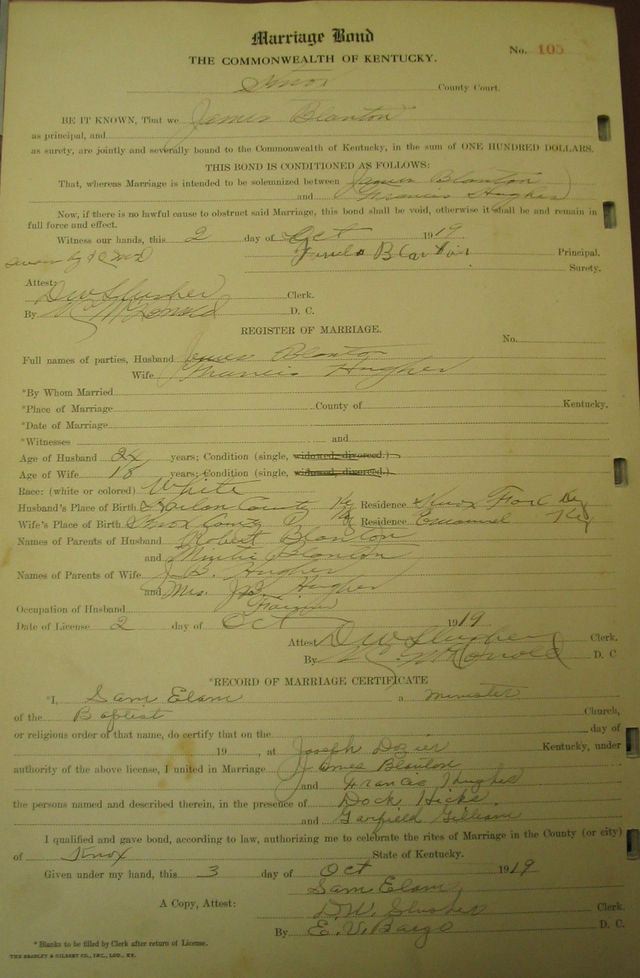 Marriage Bond
No. 105
THE COMMONWEALTH OF KENTUCKY.
Knox County Court.
BE IT KNOWN, That we James Blanton
as principal, and
as surety, are jointly and severally bound to the Commonwealth of Kentucky, in the sum of ONE HUNDRED DOLLARS.
THIS BOND IS CONDITIONED AS FOLLOWS:
That, whereas Marriage is intended to be solemnized between James Blanton
and Francis Hughes
Now, if there is no lawful cause to obstruct said Marriage, this bond shall be void, otherwise it shall be and remain in
full force and effect.
Witness our hands, this 2 day of Oct 1919
Blanton Principal.
Surety.
Attest:
D W Slusher Clerk.
By McDonald D. C.
REGISTER OF MARRIAGE.
No.
Full names of parties, Husband James Blanton
Wife Francis Hughes
*By Whom Married
*Place of Marriage County of Kentucky.
*Date of Marriage
*Witnesses and
Age of Husband 24 years; Condition (single, widowed, divorced.)
Age of Wife 18 years; Condition (single, widowed, divorced.)
Race: (white or colored) White
Husband's Place of Birth Harlan County Ky Residence Knox Fork Ky
Wife's Place of Birth Knox County Ky Residence Emanuel Ky
Names of Parents of Husband Robert Blanton
and Blanton
Names of Parents of Wife J. B. Hughes
and Mrs. J. B. Hughes
Occupation of Husband Farmer
Date of License 2 day of Oct 1919
Attest D W Slusher Clerk.
By McDonald D. C
*RECORD OF MARRIAGE CERTIFICATE
*I, Sam Elam a Minister
of the Baptist Church,
or religious order of that name, do certify that on the day of
19 , at Joseph Dozier Kentucky, under
authority of the above license, I united in Marriage James Blanton
and Francis Hughes
the persons named and described therein, in the presence of Dock Hicks
and Garfield Gilliam
I qualified and gave bond, according to law, authorizing me to celebrate the rites of Marriage in the County (or city)
of Knox State of Kentucky.
Given under my hand, this 3 day of Oct 1919
Sam Elam
A Copy, Attest: D.W. Slusher Clerk.
By E. V. Bargo D. C.
* Blanks to be filled by Clerk after return of License.
THE BRADLEY & GILBERT CO., INC., LOU., KY.